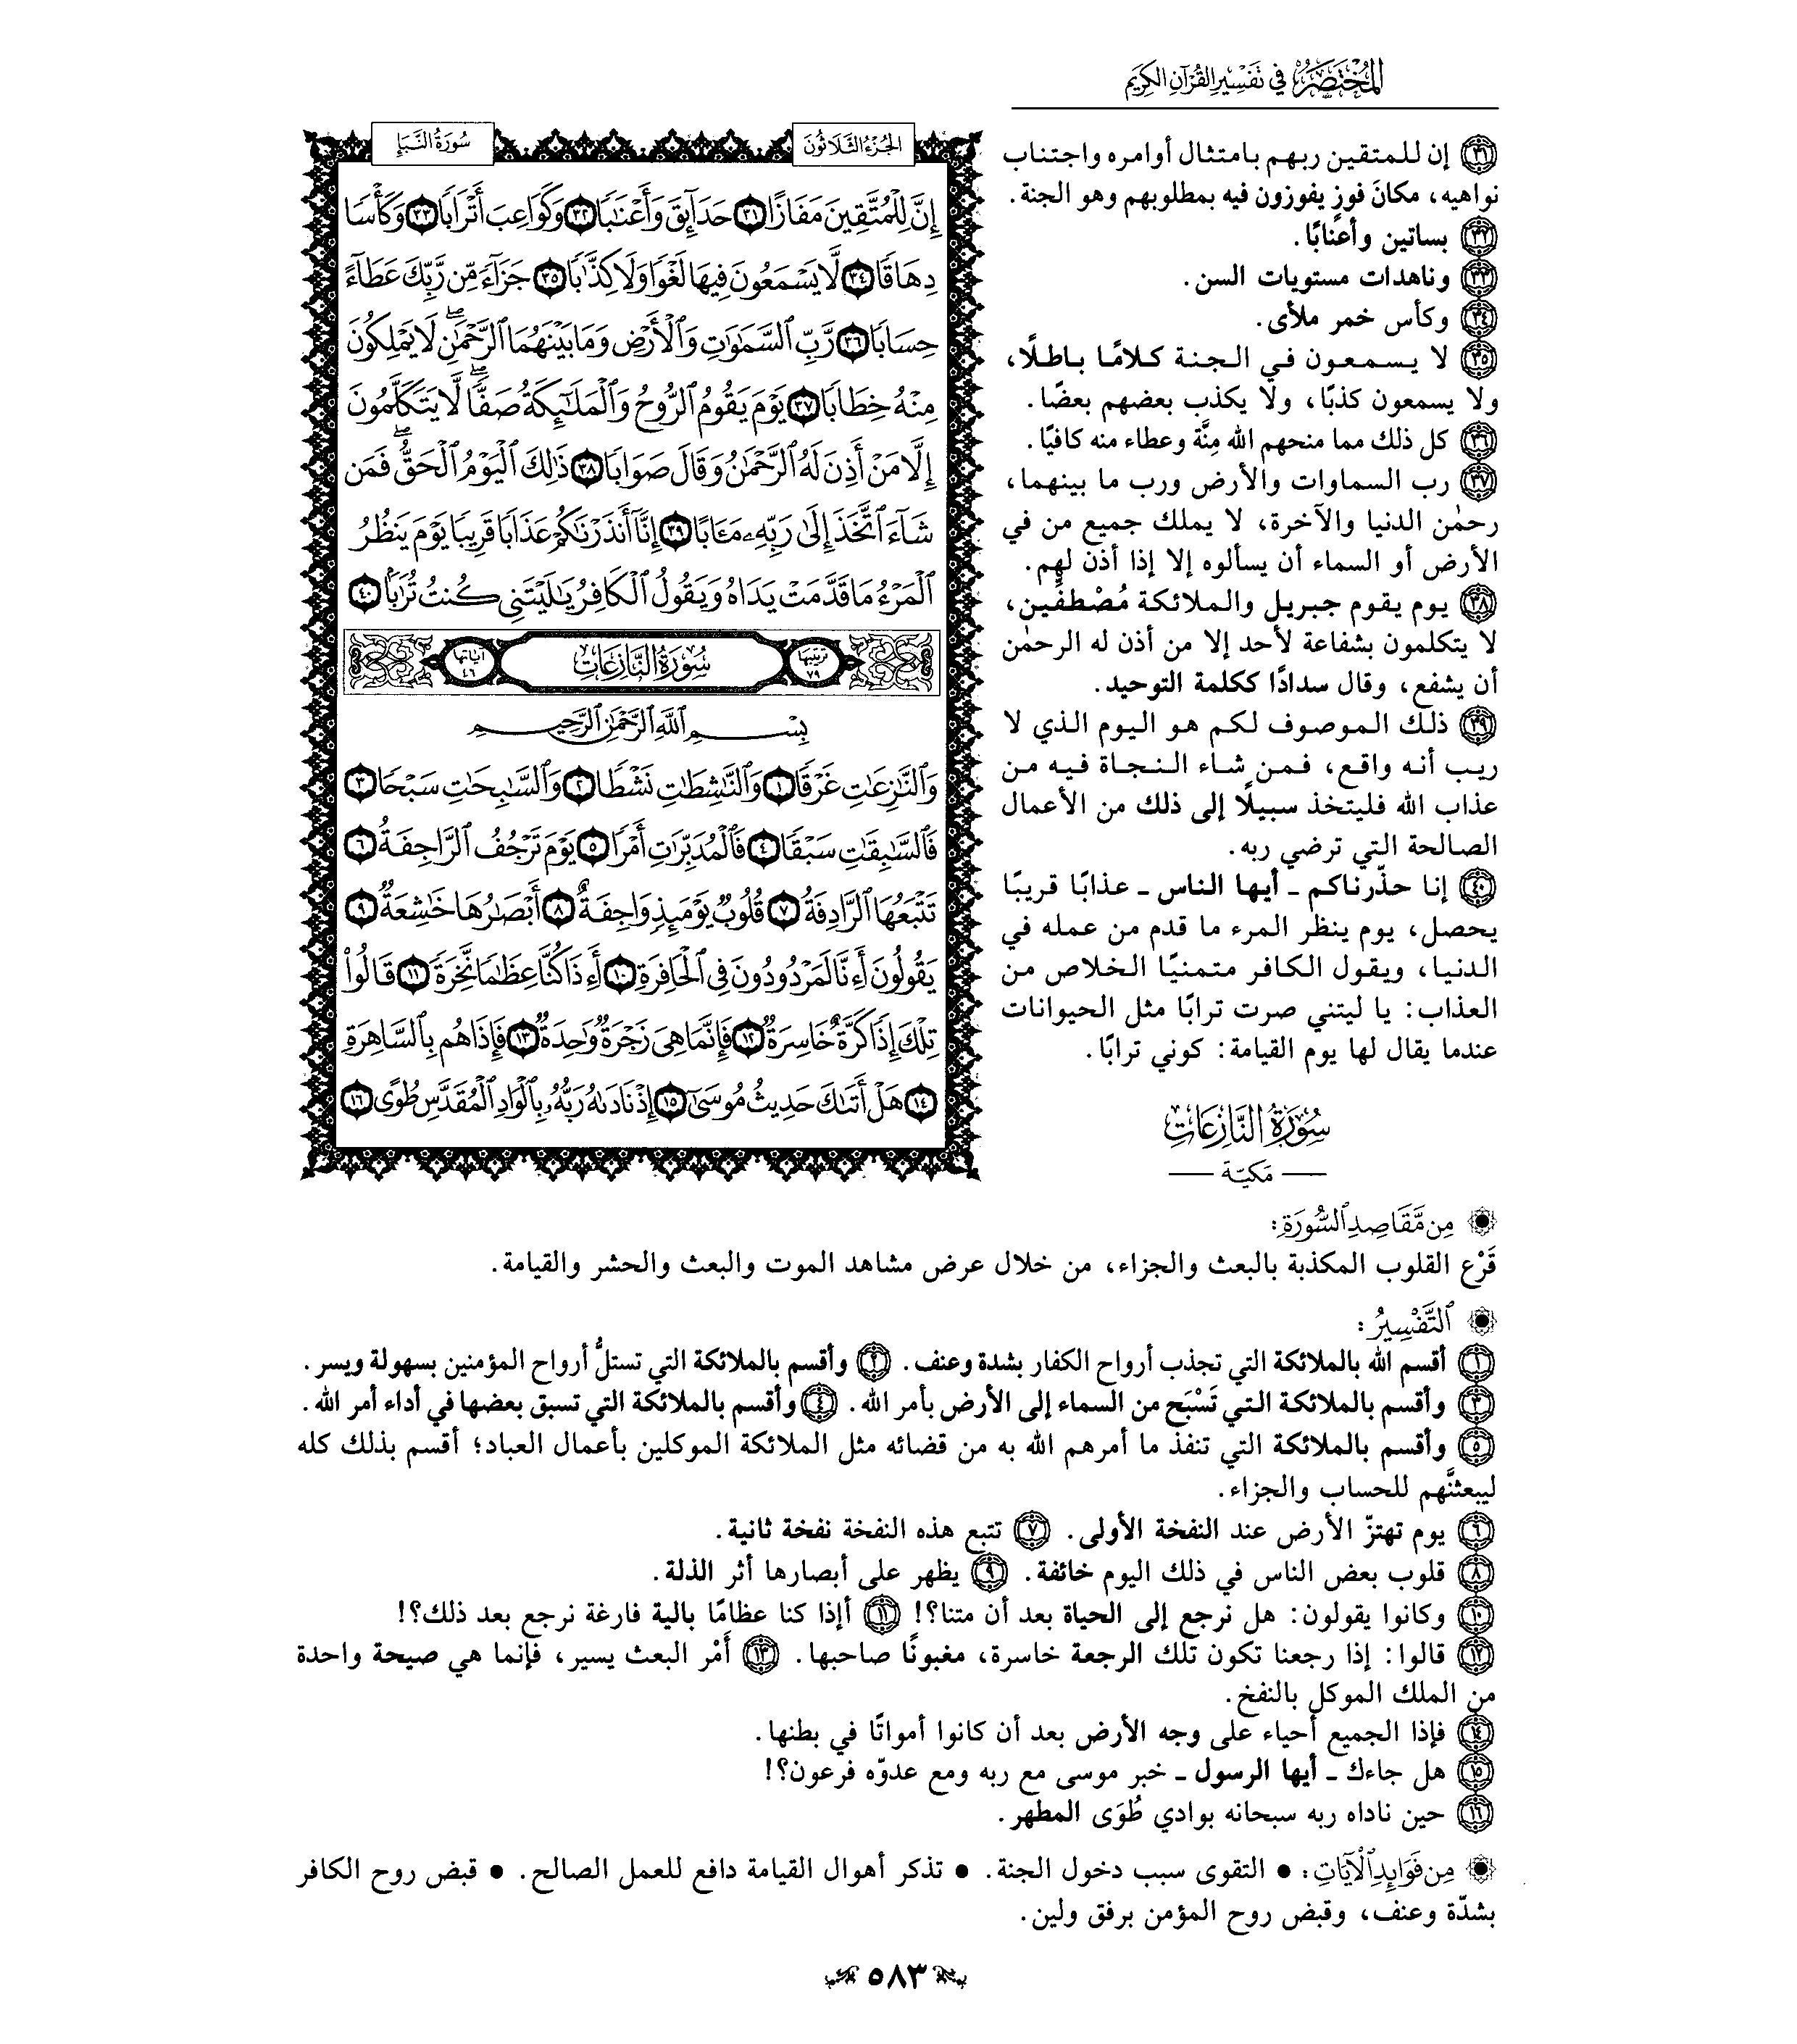 المختصر في تفسير القرآن الكريم
الجزء الثلاثون
سورة النبإ
إِنَّ لِلْمُتَّقِينَ مَفَازًا ٣١ حَدَآئِقَ وَأَعْنَٰبًا ٣٢ وَكَوَاعِبَ أَتْرَابًا ٣٣ وَكَأْسًا
دِهَاقًا ٣٤ لَّا يَسْمَعُونَ فِيهَا لَغْوًا وَلَا كِذَّٰبًا ٣٥ جَزَآءً مِّن رَّبِّكَ عَطَآءً
حِسَابًا ٣٦ رَّبِّ ٱلسَّمَٰوَٰتِ وَٱلْأَرْضِ وَمَا بَيْنَهُمَا ٱلرَّحْمَٰنِۖ لَا يَمْلِكُونَ
مِنْهُ خِطَابًا ٣٧ يَوْمَ يَقُومُ ٱلرُّوحُ وَٱلْمَلَٰٓئِكَةُ صَفًّاۖ لَّا يَتَكَلَّمُونَ
إِلَّا مَنْ أَذِنَ لَهُ ٱلرَّحْمَٰنُ وَقَالَ صَوَابًا ٣٨ ذَٰلِكَ ٱلْيَوْمُ ٱلْحَقُّۖ فَمَن
شَآءَ ٱتَّخَذَ إِلَىٰ رَبِّهِۦ مَـَٔابًا ٣٩ إِنَّآ أَنذَرْنَٰكُمْ عَذَابًا قَرِيبًا يَوْمَ يَنظُرُ
ٱلْمَرْءُ مَا قَدَّمَتْ يَدَاهُ وَيَقُولُ ٱلْكَافِرُ يَٰلَيْتَنِى كُنتُ تُرَٰبًۢا ٤٠
ترتيبها ٧٩ سورة النازعات آياتها ٤٦
بِسْمِ ٱللَّهِ ٱلرَّحْمَٰنِ ٱلرَّحِيمِ
وَٱلنَّٰزِعَٰتِ غَرْقًا ١ وَٱلنَّٰشِطَٰتِ نَشْطًا ٢ وَٱلسَّٰبِحَٰتِ سَبْحًا ٣
فَٱلسَّٰبِقَٰتِ سَبْقًا ٤ فَٱلْمُدَبِّرَٰتِ أَمْرًا ٥ يَوْمَ تَرْجُفُ ٱلرَّاجِفَةُ ٦
تَتْبَعُهَا ٱلرَّادِفَةُ ٧ قُلُوبٌ يَوْمَئِذٍ وَاجِفَةٌ ٨ أَبْصَٰرُهَا خَٰشِعَةٌ ٩
يَقُولُونَ أَءِنَّا لَمَرْدُودُونَ فِى ٱلْحَافِرَةِ ١٠ أَءِذَا كُنَّا عِظَٰمًا نَّخِرَةً ١١ قَالُوا۟
تِلْكَ إِذًا كَرَّةٌ خَاسِرَةٌ ١٢ فَإِنَّمَا هِىَ زَجْرَةٌ وَٰحِدَةٌ ١٣ فَإِذَا هُم بِٱلسَّاهِرَةِ
١٤ هَلْ أَتَىٰكَ حَدِيثُ مُوسَىٰٓ ١٥ إِذْ نَادَىٰهُ رَبُّهُۥ بِٱلْوَادِ ٱلْمُقَدَّسِ طُوًى ١٦
٣١ إن للمتقين ربهم بامتثال أوامره واجتناب
نواهيه، مكانَ فوزٍ يفوزون فيه بمطلوبهم وهو الجنة.
٣٢ بساتين وأعنابًا.
٣٣ وناهدات مستويات السن.
٣٤ وكأس خمر ملأى.
٣٥ لا يسمعون في الجنة كلامًا باطلًا،
ولا يسمعون كذبًا، ولا يكذب بعضهم بعضًا.
٣٦ كل ذلك مما منحهم الله مِنَّة وعطاء منه كافيًا.
٣٧ رب السماوات والأرض ورب ما بينهما،
رحمٰن الدنيا والآخرة، لا يملك جميع من في
الأرض أو السماء أن يسألوه إلا إذا أذن لهم.
٣٨ يوم يقوم جبريل والملائكة مُصْطفِّين،
لا يتكلمون بشفاعة لأحد إلا من أذن له الرحمٰن
أن يشفع، وقال سدادًا ككلمة التوحيد.
٣٩ ذلك الموصوف لكم هو اليوم الذي لا
ريب أنه واقع، فمن شاء النجاة فيه من
عذاب الله فليتخذ سبيلًا إلى ذلك من الأعمال
الصالحة التي ترضي ربه.
٤٠ إنا حذّرناكم ـ أيها الناس ـ عذابًا قريبًا
يحصل، يوم ينظر المرء ما قدم من عمله في
الدنيا، ويقول الكافر متمنيًا الخلاص من
العذاب: يا ليتني صرت ترابًا مثل الحيوانات
عندما يقال لها يوم القيامة: كوني ترابًا.
سورة النازعات
مكية
من مقاصد السورة:
قَرْع القلوب المكذبة بالبعث والجزاء، من خلال عرض مشاهد الموت والبعث والحشر والقيامة.
التفسير:
١ أقسم الله بالملائكة التي تجذب أرواح الكفار بشدة وعنف. ٢ وأقسم بالملائكة التي تستلُّ أرواح المؤمنين بسهولة ويسر.
٣ وأقسم بالملائكة التي تَسْبَح من السماء إلى الأرض بأمر الله. ٤ وأقسم بالملائكة التي تسبق بعضها في أداء أمر الله.
٥ وأقسم بالملائكة التي تنفذ ما أمرهم الله به من قضائه مثل الملائكة الموكلين بأعمال العباد؛ أقسم بذلك كله
ليبعثنَّهم للحساب والجزاء.
٦ يوم تهتزّ الأرض عند النفخة الأولى. ٧ تتبع هذه النفخة نفخة ثانية.
٨ قلوب بعض الناس في ذلك اليوم خائفة. ٩ يظهر على أبصارها أثر الذلة.
١٠ وكانوا يقولون: هل نرجع إلى الحياة بعد أن متنا؟! ١١ أإذا كنا عظامًا بالية فارغة نرجع بعد ذلك؟!
١٢ قالوا: إذا رجعنا تكون تلك الرجعة خاسرة، مغبونًا صاحبها. ١٣ أَمْر البعث يسير، فإنما هي صيحة واحدة
من الملك الموكل بالنفخ.
١٤ فإذا الجميع أحياء على وجه الأرض بعد أن كانوا أمواتًا في بطنها.
١٥ هل جاءك ـ أيها الرسول ـ خبر موسى مع ربه ومع عدوّه فرعون؟!
١٦ حين ناداه ربه سبحانه بوادي طُوَى المطهر.
من فوائد الآيات: • التقوى سبب دخول الجنة. • تذكر أهوال القيامة دافع للعمل الصالح. • قبض روح الكافر
بشدّة وعنف، وقبض روح المؤمن برفق ولين.
٥٨٣